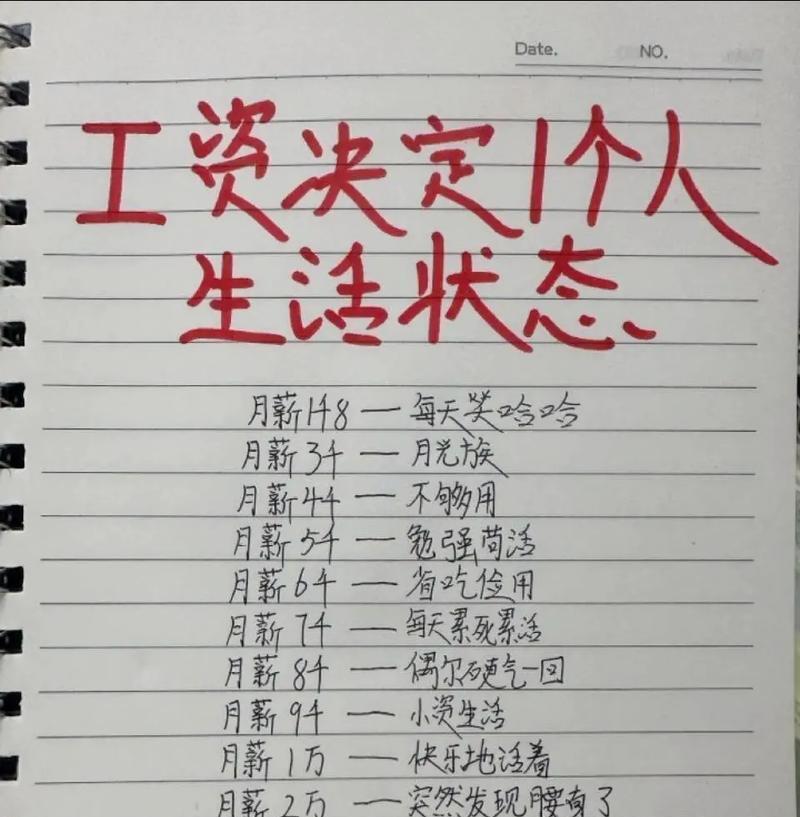 Date. NO.
工资决定1个人
生活状态
月薪1千8 — 每天笑哈哈
月薪3千 — 月光族
月薪4千 — 不够用
月薪5千 — 勉强苟活
月薪6千 — 省吃俭用
月薪7千 — 每天累死累活
月薪8千 — 偶尔硬气一回
月薪9千 — 小资生活
月薪1万 — 快乐地活着
月薪2万 — 突然发现腰有了